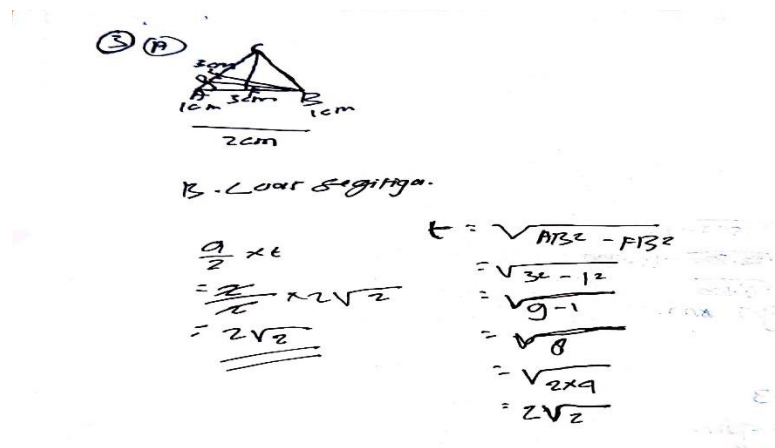 ③ A
C
3cm
A
3cm
F
B
1cm
1cm
2cm
B. Luas segitiga.
a/2 × t
= 2/2 × 2√2
= 2√2
t = √AB² - FB²
= √3² - 1²
= √9-1
= √8
= √2×4
= 2√2
3